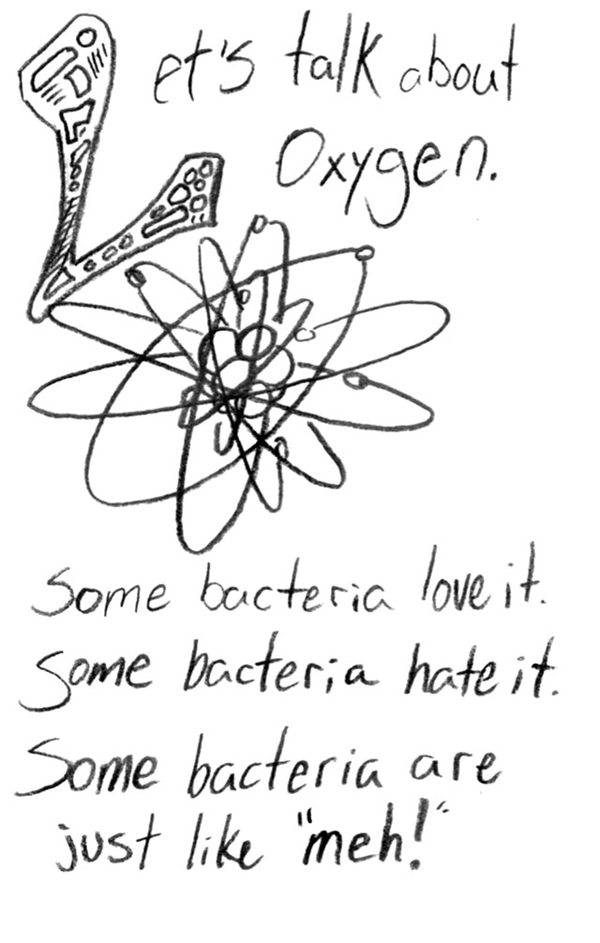 Let's talk about
Oxygen.
Some bacteria love it.
Some bacteria hate it.
Some bacteria are
just like "meh!"